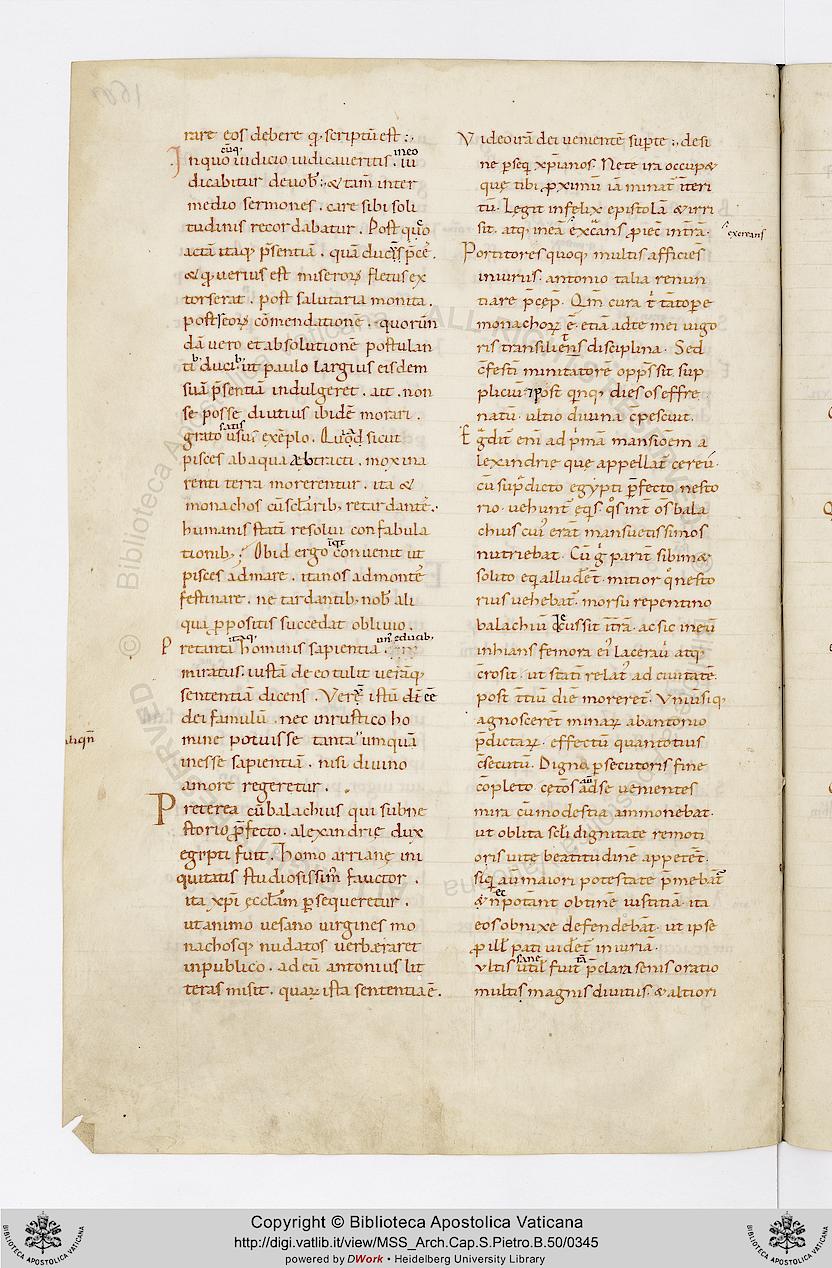 rare eos debere q̨. scriptū est :,
In quo iudicio iudicaueritis . iu
cūq; in eo
dicabitur de uob̄ :, & tam̄ inter
medio sermones . care sibi soli
tudinis recordabatur . Post quō
actā itaq; p̄sentiā . quā
& q̨ uerius est miserorꝝ fletus ex
torserat . post salutaria monita .
post seorꝝ cōmendationē . quorūn
dā uero et absolutionē postulan
tib; ducib; ut paulo largius eisdem
suā p̄sentiā indulgeret . ait . non
se posse diutius ibidē morari .
grato usus exēplo . Quod sicut
satis
pisces ab aqua abstracti . mox in a
renti terra morerentur . ita &
monachos cū sc̄larib; retardantē .
humanis statī resolui confabula
tionib; : Ob id ergo conuenit ut
īqt
pisces ad mare . ita nos ad montē
festinare . ne tardantib; nob̄ ali
qua p̨positis succedat obliuio .
Pretantā hominis sapientiā
itaq; ducib;
miratus . iustā de eo tulit uerāq;
sententiā dicens . Vere istū dī ēē
dei famulū . nec in rustico ho
mine potuisse tanta umquā
inesse sapientiā . nisi diuino
amore regeretur .
Preterea cū balachius qui sub ne
storio p̄fecto . alexandrię dux
egypti fuit . homo arrianę ini
quitatis studiosissim̄ fauctor .
ita xp̄i ęccl̄am persequeretur .
ut animo uesano uirgines mo
nachosq; nudatos uerbæraret
in publico . ad eū antonius lit
teras misit . quarꝝ ista sententia ē .
Video irā dei uenientē sup te :, desi
ne perseq̄ xp̄ianos . Ne te ira occup&
quę tibi p̨ximū iā minat̄ īteri
tū . Legit infelix epistolā & irri
sit . atq; in eā excreans p̨iec in t̄rā .
excreans
Portitores quoq; multis afficiēs
iniuriis . antonio talia renun
tiare p̄cęp̄ . Qm̄ cura t̄ tātopere
monachorꝝ ē . etiā ad te mei uigo
ris transiliens disciplina . Sed
c̄festi minitatorē opp̄ssit sup
pliciū . post quinq; dies os effre
natū . ultio diuina c̄pescuit .
Egr̄dit̄ eni ad p̄mā mansioēm a
lexandrie quę appellat̄ cereū .
cū sup̄dicto egypti p̄fecto nesto
rio . uehunt̄ eqis qi sint om̄s bala
chius cui erat̄ mansuetissimos
nutriebat . Cū ḡ parit̄ sibimæ
solito eq alludēt . mitior q̄ nesto
rius uehebat̄ . morsu repentino
balachiū
inhians femora ei lacerauī atq;
c̄rosit . ut stati relat̄ ad ciuitatē .
post t̄tiū diē moreret̄ . Vniusiq;
agnoscerent minarꝝ ab antonio
p̄dictarꝝ . effectū quantotius
c̄secutū . Digno persecutoris fine
cōpleto cęt̄os ad se uenientes
mira cū modestia ammonebat .
ut oblita scl̄i dignitate remoti
oris uitę beatitudinē appetēt .
Siq; au maiori potestate p̄mebant̄
& n̄ potant obtinē iustitiā . ita
eos obnixe defendebat̄ . ut ipse
p̨ ill̄ pati uidet̄ iniuriā .
ultis util̄ fuit p̄clara senis oratio
sane
multis magnis diuitiis . & altiori
Copyright © Biblioteca Apostolica Vaticana
http://digi.vatlib.it/view/MSS_Arch.Cap.S.Pietro.B.50/0345
powered by DWork • Heidelberg University Library